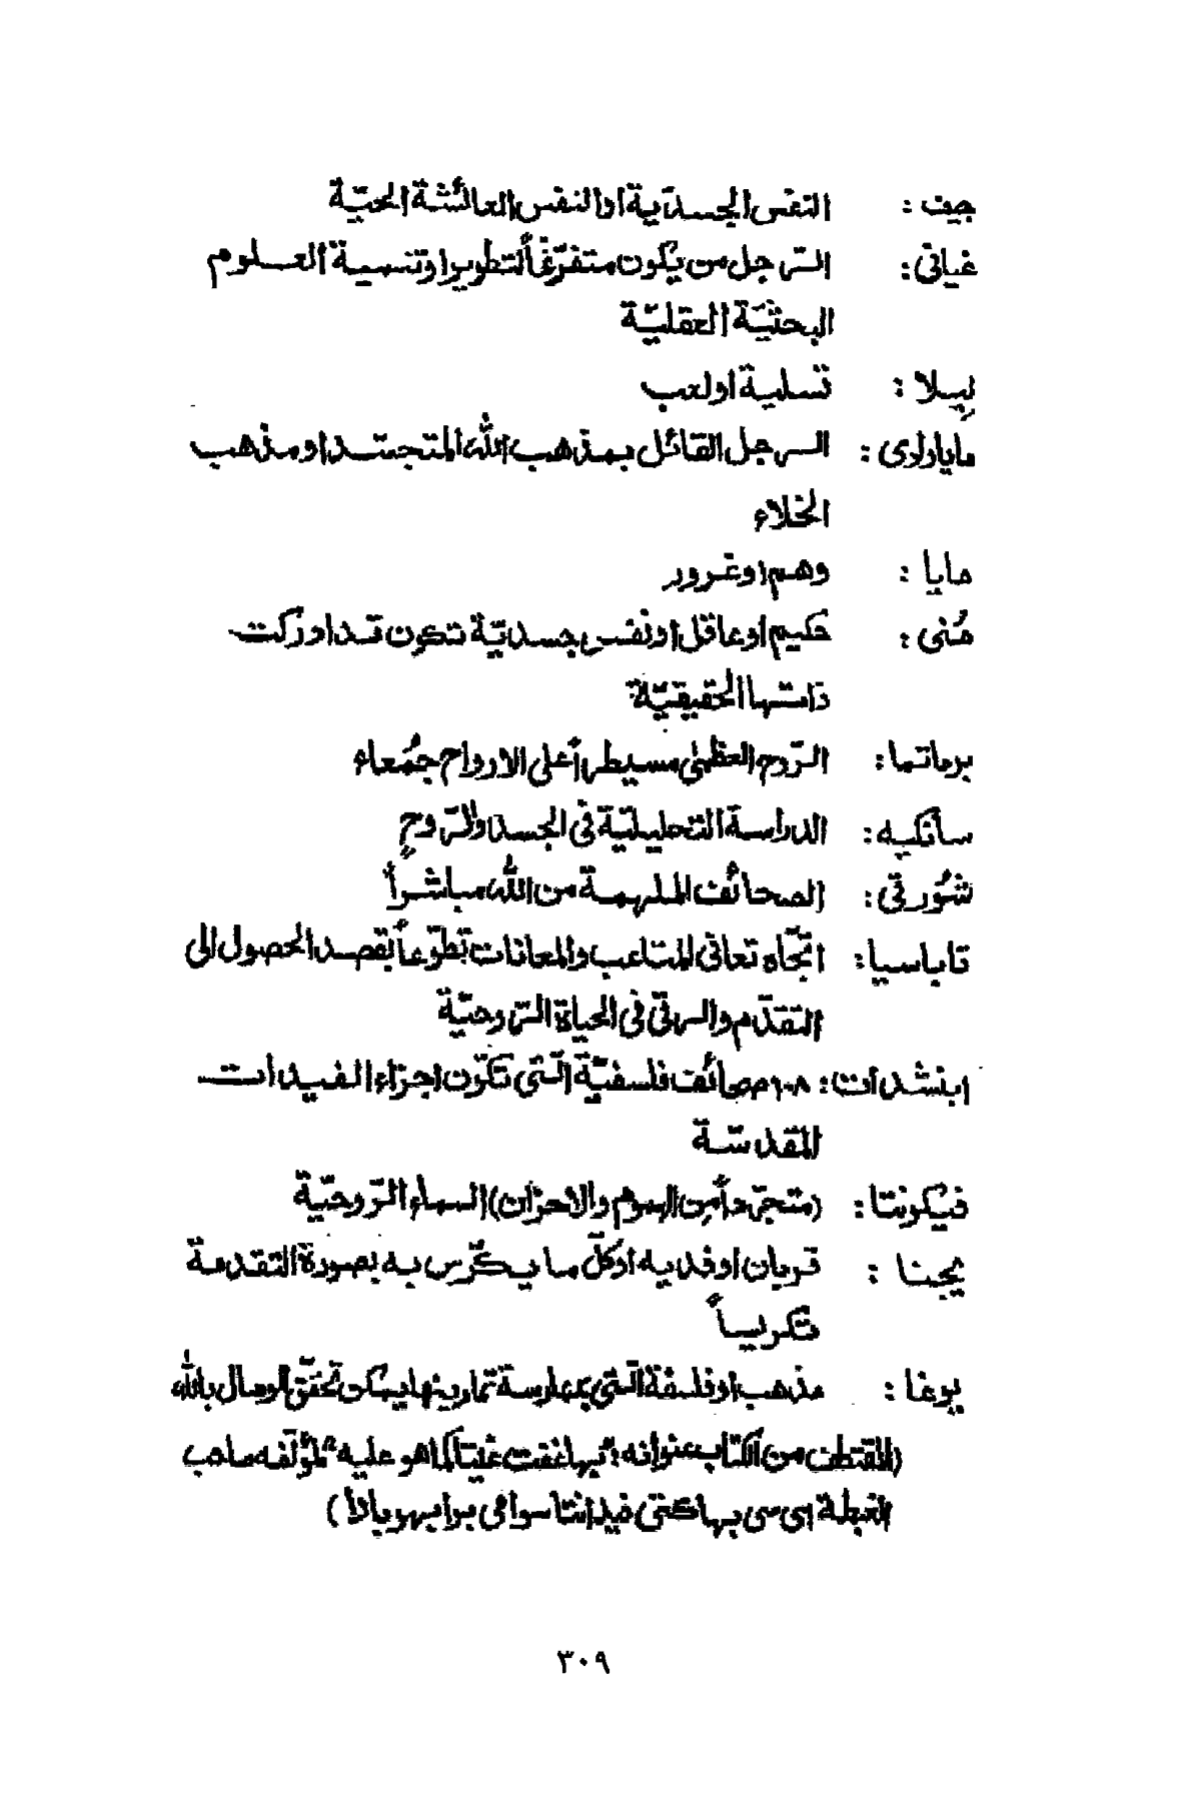 جيف : النفس الجسديّة او النفس العائشة الحيّة
غيانى : الرّجل من يكون متفرّغاً لتطوير اوتنمية العلوم
البحثيّة العقليّة
ليلا : تسلية اولعب
مايادادى : الرجل القائل بمذهب الله المتجسّد او مذهب
الخلاء
مايا : وهم او غرور
مُنى : حكيم او عاقل او نفس جسديّة تكون قد ادركت
ذاتها الحقيقيّة
برماتما : الرّوح العظمٰى مسيطراً على الارواح جُمعاء
سانكيه : الدراسة التحليليّة فى الجسد والرّوح
شُورتى : الصحائف الملهمة من الله مباشراً
تاباسيا : اتّجاه تعانى المتاعب والمعانات تطوّعاً بقصد الحصول الى
التقدّم والرقىّ فى الحياة الرّوحيّة
ابنشدات : ١٠٨ صحائف فلسفيّة الّتى تكوّن اجزاء الفيدات
المقدسّة
فيكونتا : (متجرّداً من الهموم والاحزان) السماء الرّوحيّة
يجنا : قربان او فديه او كلّ ما يكّرس به بصورة التقدمة
تكريساً
يوغا : مذهب او فلسفة الّتى بممارسة تمارينها يمكن تحقّق الوصال بالله
(المقتطف من الكتاب عنوانه "بهاغفت غيتا كما هو عليه" لمؤلّفه صاحب
الغبطة اى سى بهاكتى فيدانتا سوامى برابهوبادا)
٣٠٩